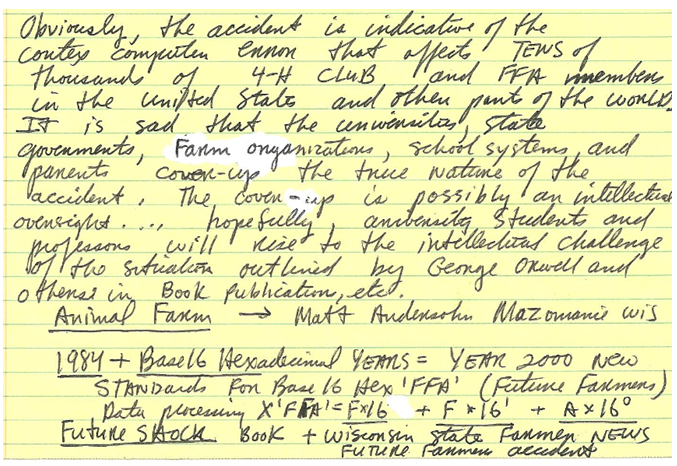 Obviously, the accident is indicative of the
contex computer error that affects TENS of
thousands of 4-H CLUB and FFA members
in the United State and other parts of the world.
It is sad that the universities, state
governments, Farm organizations, school systems, and
parents cover-up the true nature of the
accident. The cover-up is possibly an intellectual
oversight.... hopefully, university students and
professors will rise to the intellectual challenge
of the situation outlined by George Orwell and
others in Book Publication, etc.
Animal Farm → Matt Andersohn Mazomanie Wis
1984 + Base 16 Hexadecimal YEARS = YEAR 2000 New
STANDARDS For Base 16 Hex 'FFA' (Future Farmers)
Data processing X'FFA' = F×16 + F×16¹ + A×16⁰
FUTURE SHOCK Book + Wisconsin State Farmer NEWS
FUTURE Farmers accident